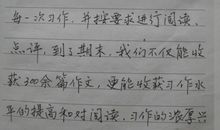 每一次习作，并按要求进行阅读、
点评，到了期末，我们不仅能收
获300余篇作文，更能收获习作水
平的提高和对阅读、习作的浓厚兴